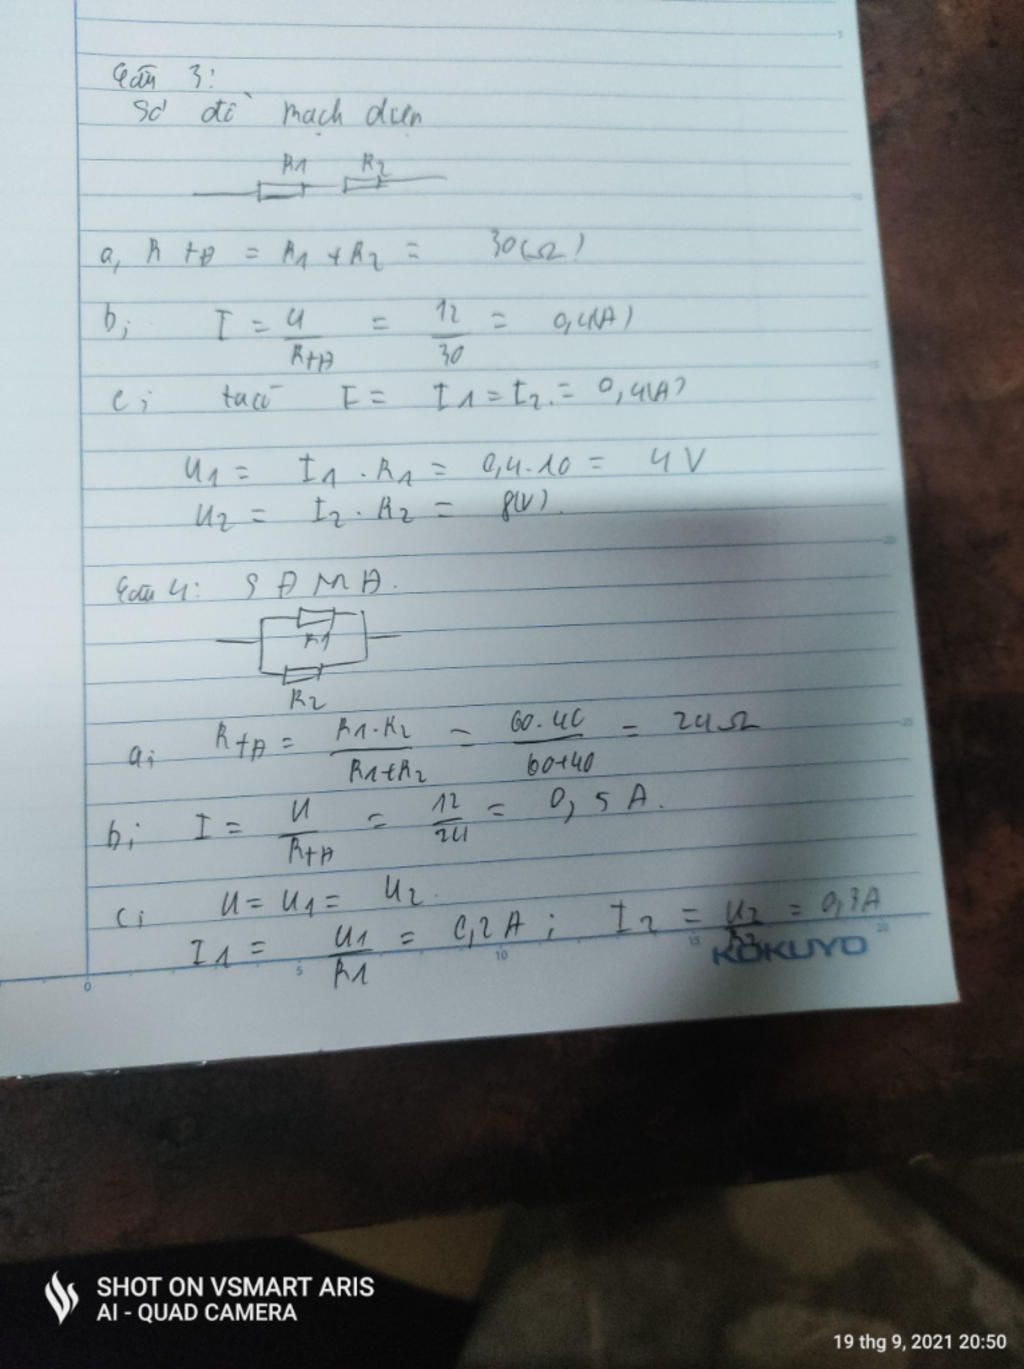 Câu 3:
Sơ đồ mạch điện
R1 R2
a, R tđ = R1 + R2 = 30(Ω)
b; I = U / Rtđ = 12 / 30 = 0,4(A)
c; ta có I = I1 = I2 = 0,4(A)
U1 = I1 . R1 = 0,4.10 = 4 V
U2 = I2 . R2 = 8(V).
Câu 4: S Đ M Đ.
R1
R2
a; Rtđ = R1.R2 / R1+R2 = 60.40 / 60+40 = 24Ω
b; I = U / Rtđ = 12 / 24 = 0,5 A.
c; U = U1 = U2.
I1 = U1 / R1 = 0,2A ; I2 = U2 / R2 = 0,3A
KOKUYO
0 5 10 15 20
SHOT ON VSMART ARIS
AI - QUAD CAMERA
19 thg 9, 2021 20:50